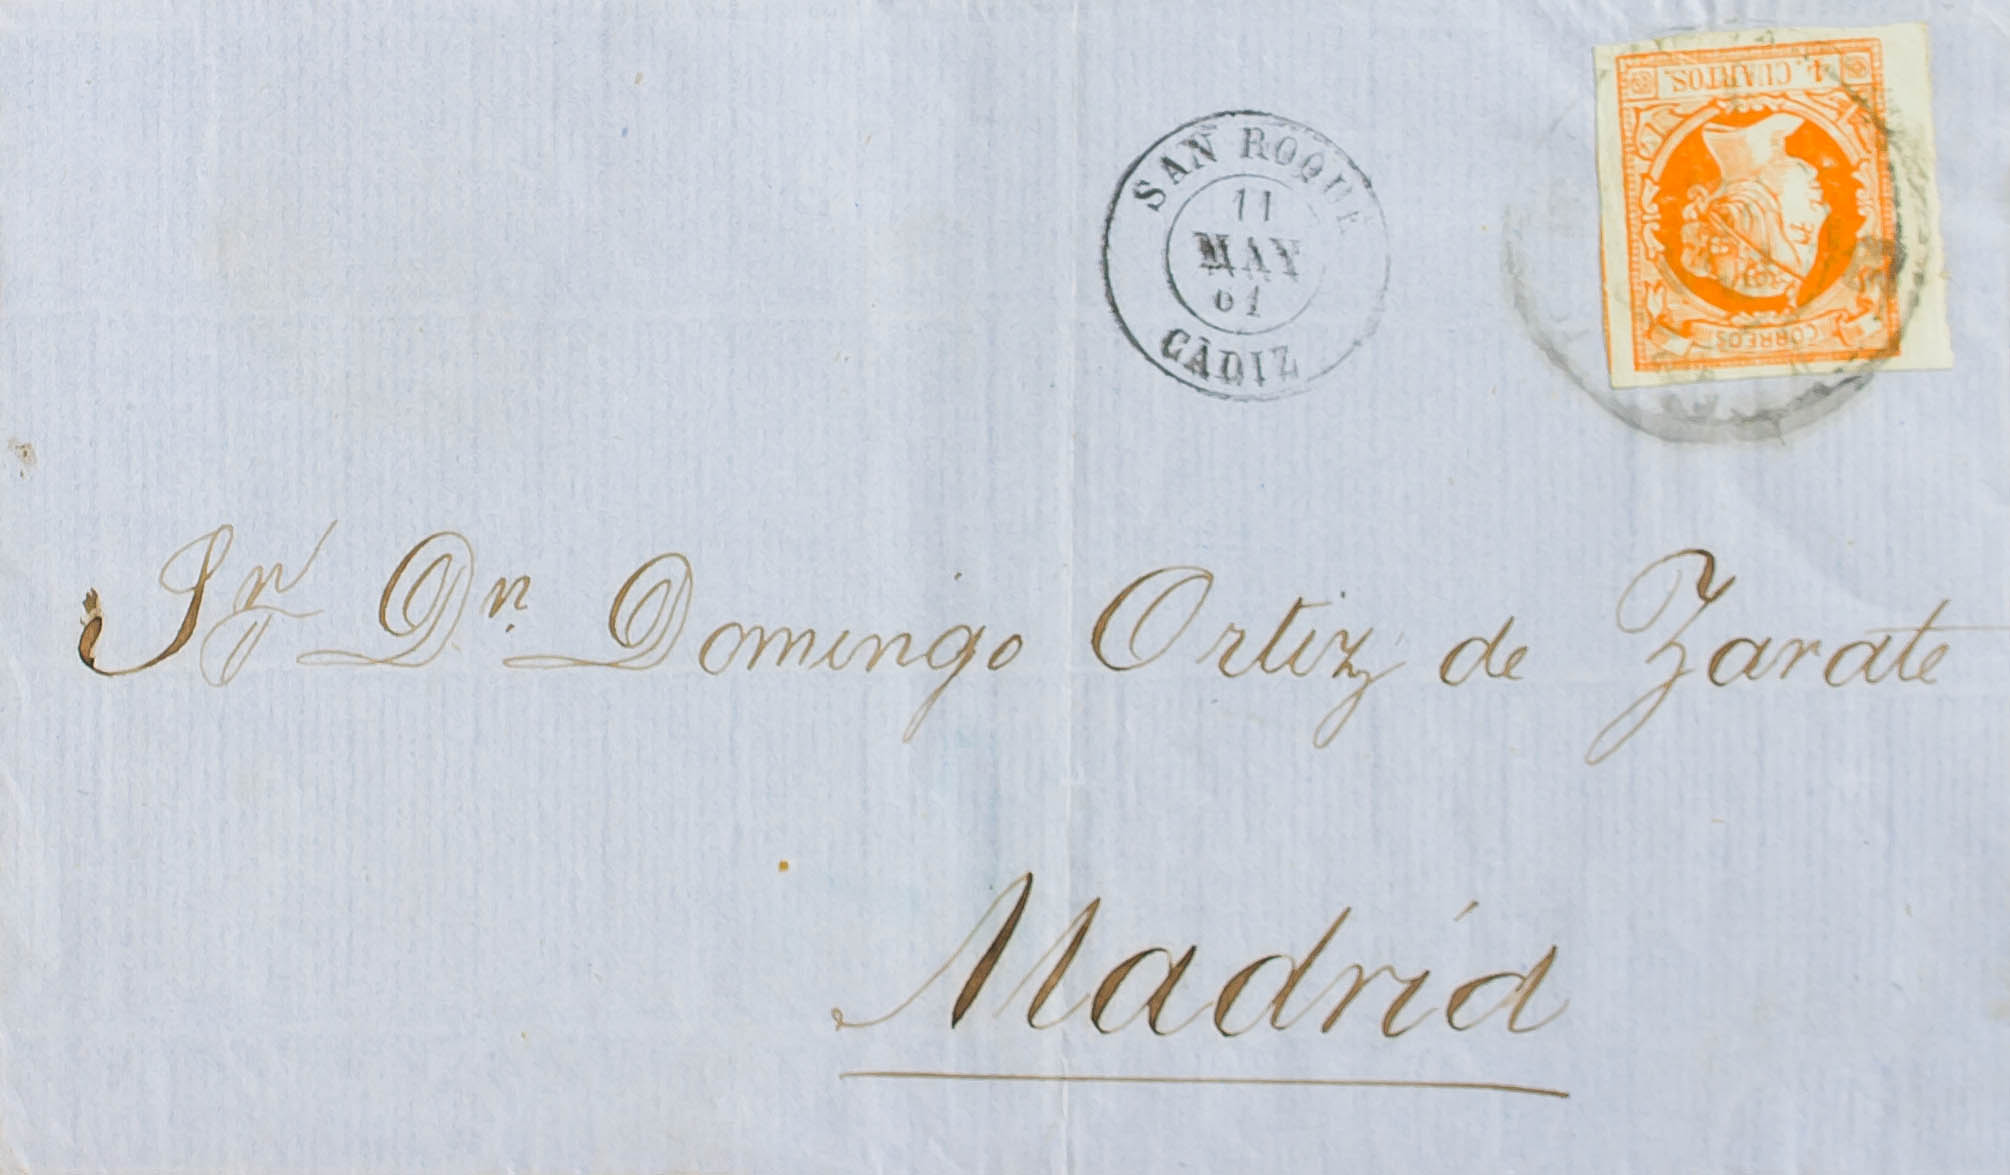 4. CUARTOS.
CORREOS
SAN ROQUE
11
MAY
61
CÁDIZ
Sr Dn. Domingo Ortiz de Zarate
Madrid